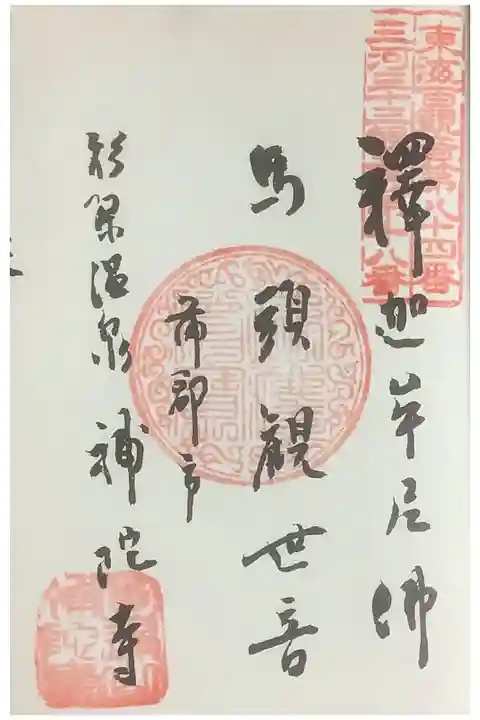 東海百観音第八十四番
三河三十三
八番
釋迦牟尼佛
馬頭觀世音
蒲郡市
形原温泉補陀寺